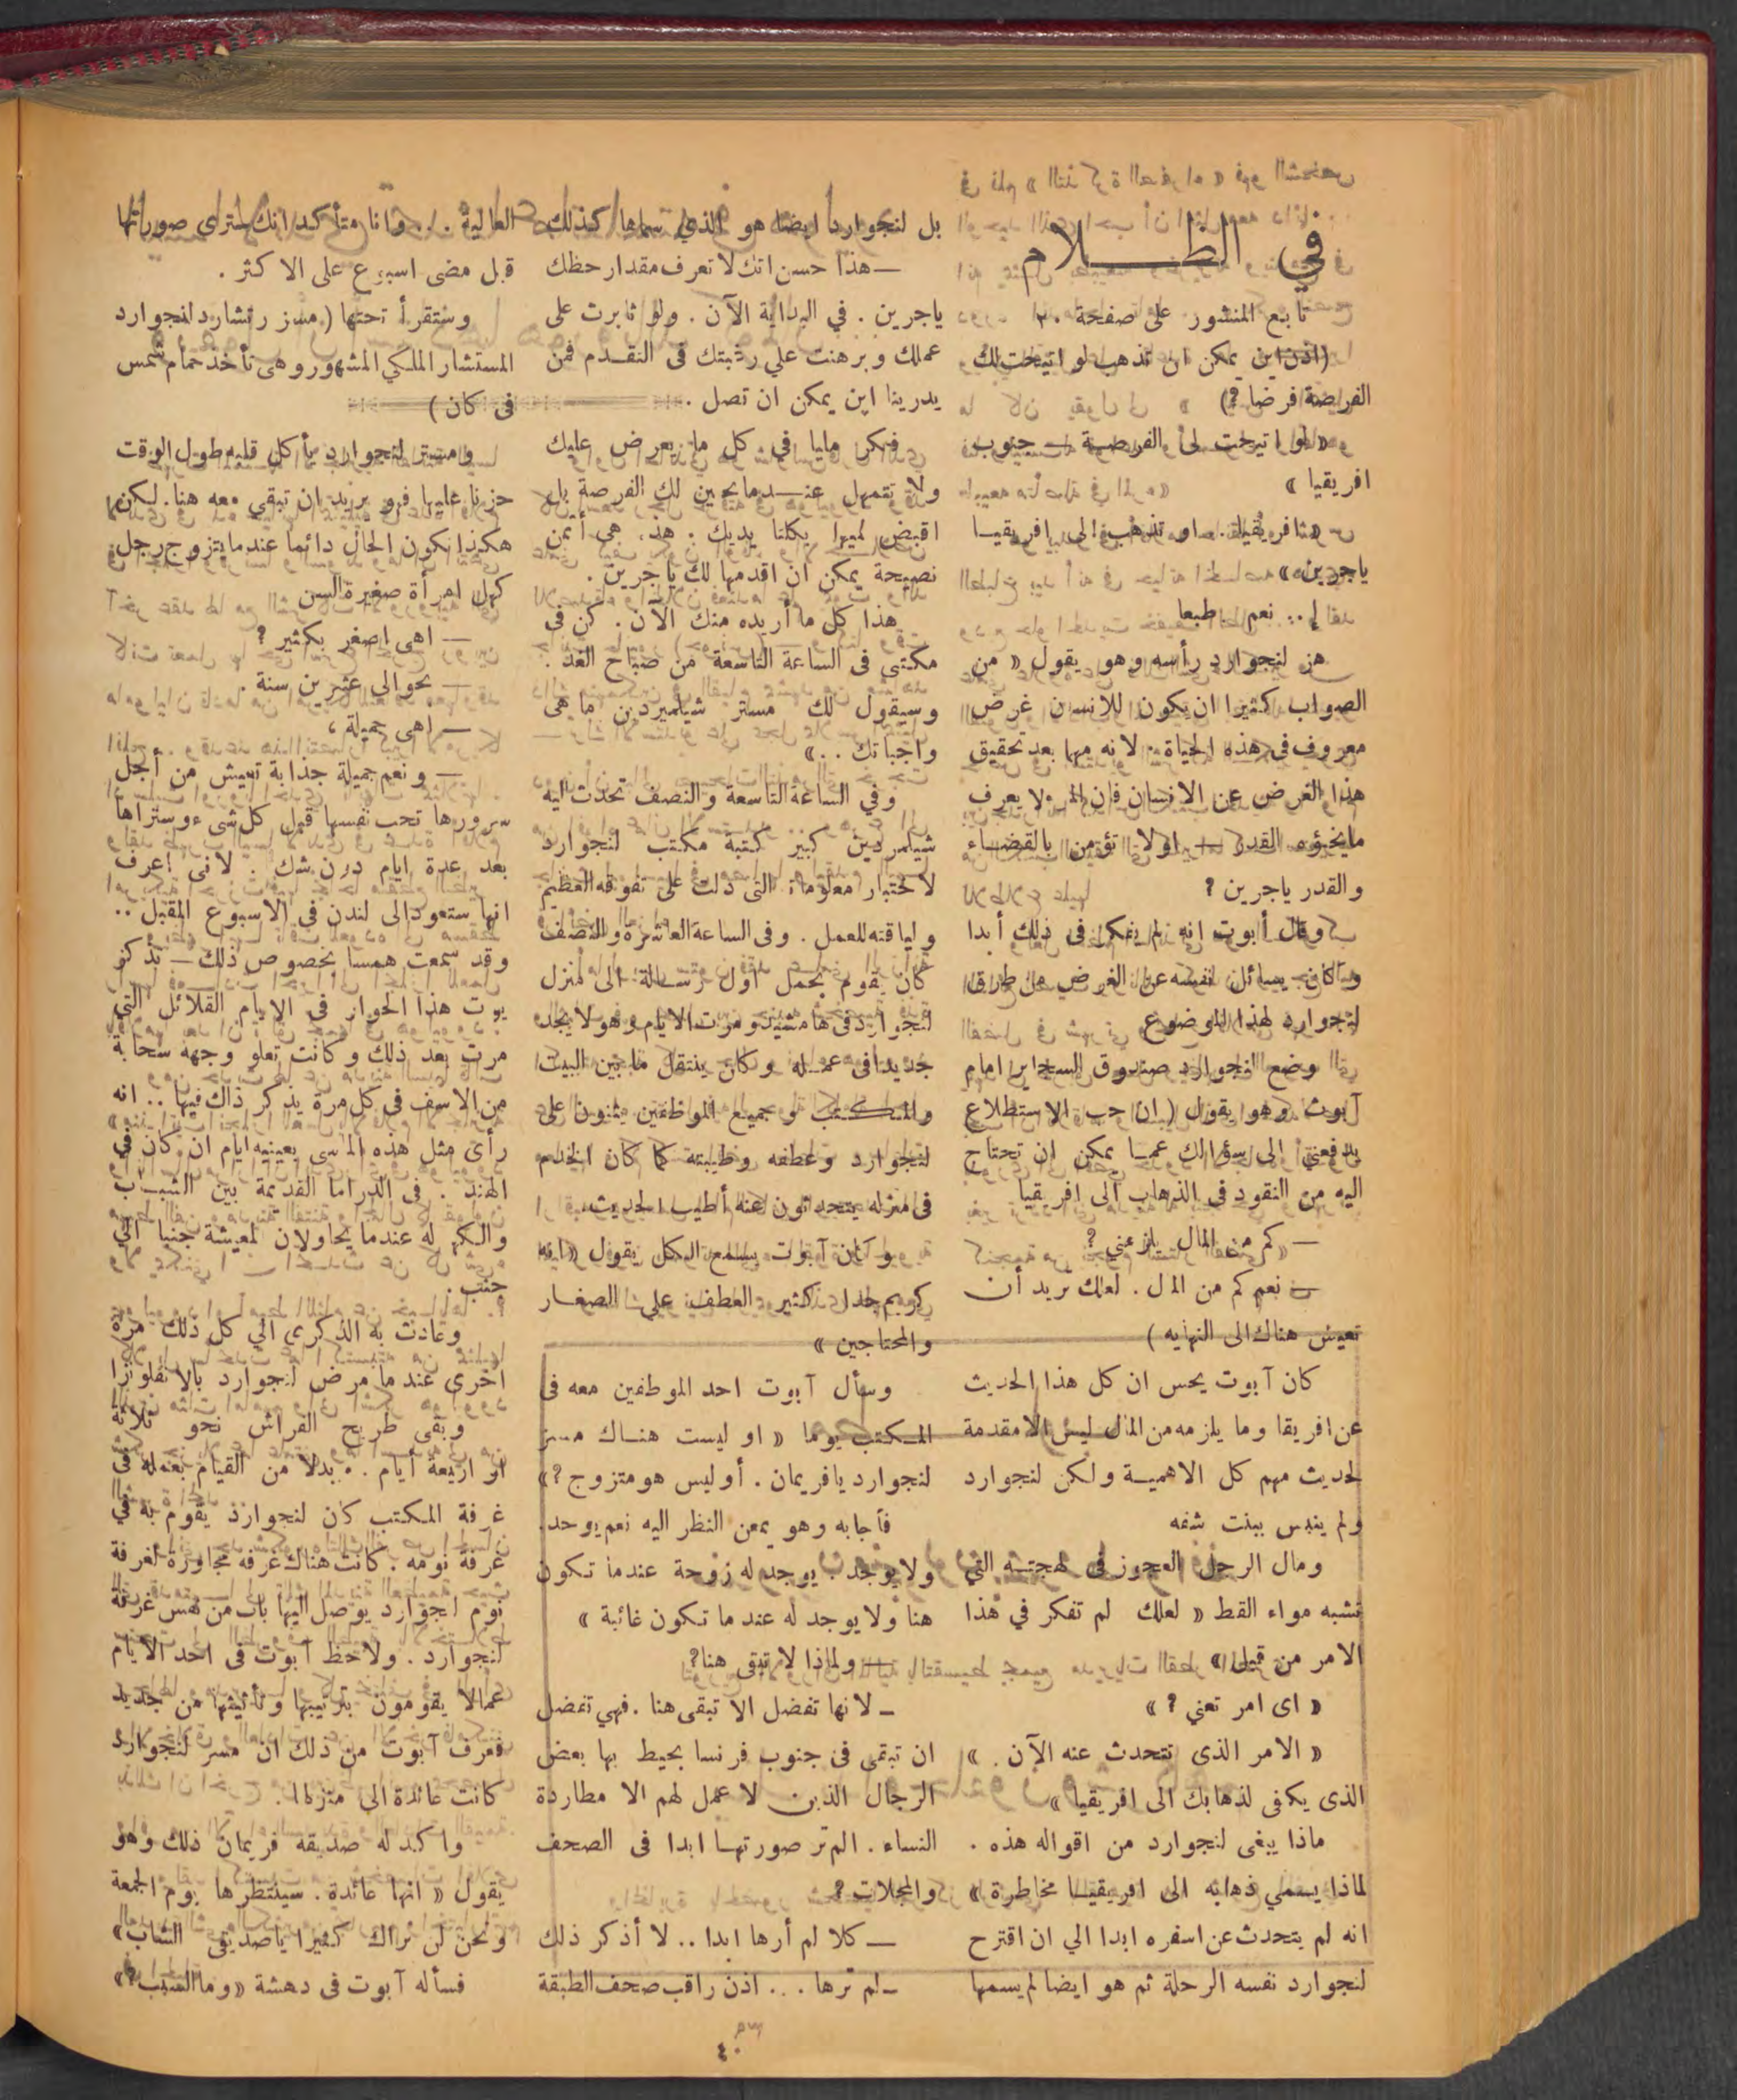 في الظـــلام
تابع المنشور على صفحة ٢٠
(اذن اين يمكن ان تذهب لو اتيحت لك
الفرصة فرضا ?)
« لو اتيحت لى الفرصة — جنوب
افريقيا »
او تذهب الى افريقيـا
ياجرين »
نعم طبعا
هز لنجوارد رأسه وهو يقول « من
الصواب كثيرا ان يكون للانسان غرض
معروف فى هذه الحياة . لانه مهما بعد تحقيق
هذا الغرض عن الانسان فان المرء لا يعرف
مايخبؤه القدر — اولا تؤمن بالقضـاء
والقدر ياجرين ?
وقال أبوت انه لم يفكر فى ذلك أبدا
وكان يسائل نفسه عن الغرض من طارق
لنجوارد لهذا الموضوع
وضع لنجوارد صندوق السجاير امام
آبوت وهو يقول ( ان حب الاستطلاع
يدفعني الى سؤالك عمـا يمكن ان تحتاج
اليه من النقود فى الذهاب الى افريقيا
— كم من المال تعني ?
— نعم كم من المال . لعلك تريد أن
تعيش هناك الى النهايه )
كان آبوت يحس ان كل هذا الحديث
عن افريقا وما يلزمه من المال ليس الا مقدمة
لحديث مهم كل الاهميـة ولكن لنجوارد
ولم ينبس ببنت شفه
ومال الرجل العجوز فى لهجتـه التي
تشبه مواء القط « لعلك لم تفكر في هذا
الامر من قبل »
« اى امر تعني ? »
« الامر الذى نتحدث عنه الآن . »
الذى يكفى لذهابك الى افريقيا »
ماذا يبغى لنجوارد من اقواله هذه .
لماذا يسمي ذهابه الى افريقيـا مخاطرة »
انه لم يتحدث عن اسفره ابدا الي ان اقترح
لنجوارد نفسه الرحلة ثم هو ايضا لم يسمها
بل لنجوارد ايضا هو الذي سماها كذلك
— هذا حسن انك لا تعرف مقدار حظك
ياجرين . في البداية الآن . ولو ثابرت على
عملك وبرهنت علي رغبتك فى التقـدم فمن
يدرينا اين يمكن ان تصل .
فكر مليا فى كل ما يعرض عليك
ولا تتمهل عنـدما يحين لك الفرصة بل
اقبض لميرا بكلتا يديك . هذه هى أثمن
نصيحة يمكن ان اقدمها لك ياجرين .
هذا كل ما أريده منك الآن . كن فى
مكتبى فى الساعة التاسعة من صباح الغد .
وسيقول لك مستر شيلميردين ما هى
واجباتك .. »
وفي الساعة التاسعة والنصف تحدث اليه
شيلمردين كبير كتبة مكتب لنجوارد
لاختبار معلوماته التى دلت على تفوقه العظيم
ولياقته للعمل . وفى الساعة العاشرة والنصف
كان يقوم بحمل اول رسالة الى منزل
لنجوارد فى هامستيد ومرت الايام وهو لا يجد
جديدا فى عمـله وكان ينتقل ما بين البيت
والمكتب وجميع الموظفين يثنون على
لنجوارد وعطفه وطيبته كما كان الخدم
فى منزله يتحدثون عنه أطيب الحديث
وكان آبوت يسمع الكل يقول « انه
كريم جدا كثير العطف على الصغـار
والمحتاجين »
وسأل آبوت احد الموظفين معه فى
المـكتب يوما « او ليست هنـاك مسز
لنجوارد يافريمان . أوليس هو متزوج ? »
فأجابه وهو يمعن النظر اليه نعم يوجد .
ولا يوجد . يوجد له زوجة عندما تكون
هنا ولا يوجد له عند ما تكون غائبة »
— ولماذا لا تبقى هنا?
— لانها تفضل الا تبقى هنا . فهي تفضل
ان تبقى فى جنوب فرنسا يحيط بها بعض
الرجال الذين لا عمل لهم الا مطاردة
النساء . الم تر صورتهـا ابدا فى الصحف
والمجلات ?
— كلا لم أرها ابدا .. لا أذكر ذلك
— لم ترها ... اذن راقب صحف الطبقة
العالية .. وانا متأكد انك سترى صورتها
قبل مضى اسبوع على الاكثر .
وستقرأ تحتها ( مسز رتشارد لنجوارد
المستشار الملكي المشهور وهى تأخذ حمام شمس
فى كان )
ومستر لنجوارد يأكل قلبه طول الوقت
حزنا عليها فهو يريد ان تبقى معه هنا . لكن
هكذا تكون الحال دائما عندما يتزوج رجل
كهل امرأة صغيرة السن
— اهى اصغر بكثير ?
— بحوالي عشرين سنة .
— اهى جميلة ؟
— ونعم جميلة جذابة تعيش من أجل
سرورها تحب نفسها قبل كل شىء وستراها
بعد عدة ايام دون شك . لانى اعرف
انها ستعود الى لندن فى الاسبوع المقبل ..
وقد سمعت همسا بخصوص ذلك — تذكر
بوت هذا الحوار فى الايام القلائل التي
مرت بعد ذلك وكانت تعلو وجهه سحابة
من الاسف فى كل مرة يذكر ذلك فيها .. انه
رأى مثل هذه المآسى بعينيه ايام ان كان فى
الهند . فى الدراما القديمة بين الشبـاب
والكهولة عندما يحاولان المعيشة جنبا الى
جنب .
وعادت به الذكرى الي كل ذلك مرة
اخرى عند ما مرض لنجوارد بالانفلونزا
وبقى طريح الفراش نحو ثلاثة
او اربعة أيام . . بدلا من القيام بعمله فى
غرفة المكتب كان لنجوارد يقوم به في
غرفة نومه . كانت هناك غرفه مجاورة لغرفة
نوم لنجوارد يوصل اليها باب من نفس غرفة
لنجوارد . ولاحظ آبوت فى احد الايام
عمالا يقومون بترتيبها وتأثيثها من جديد
فعرف آبوت من ذلك ان مسز لنجوارد
كانت عائدة الى منزلها .
واكد له صديقه فريمان ذلك وهو
يقول « انها عائدة . سينتظرها يوم الجمعة
ونحن لن نراك كثيرا ياصديقى الشاب »
فسأله آبوت فى دهشة « وما السبب ? »
٤٠